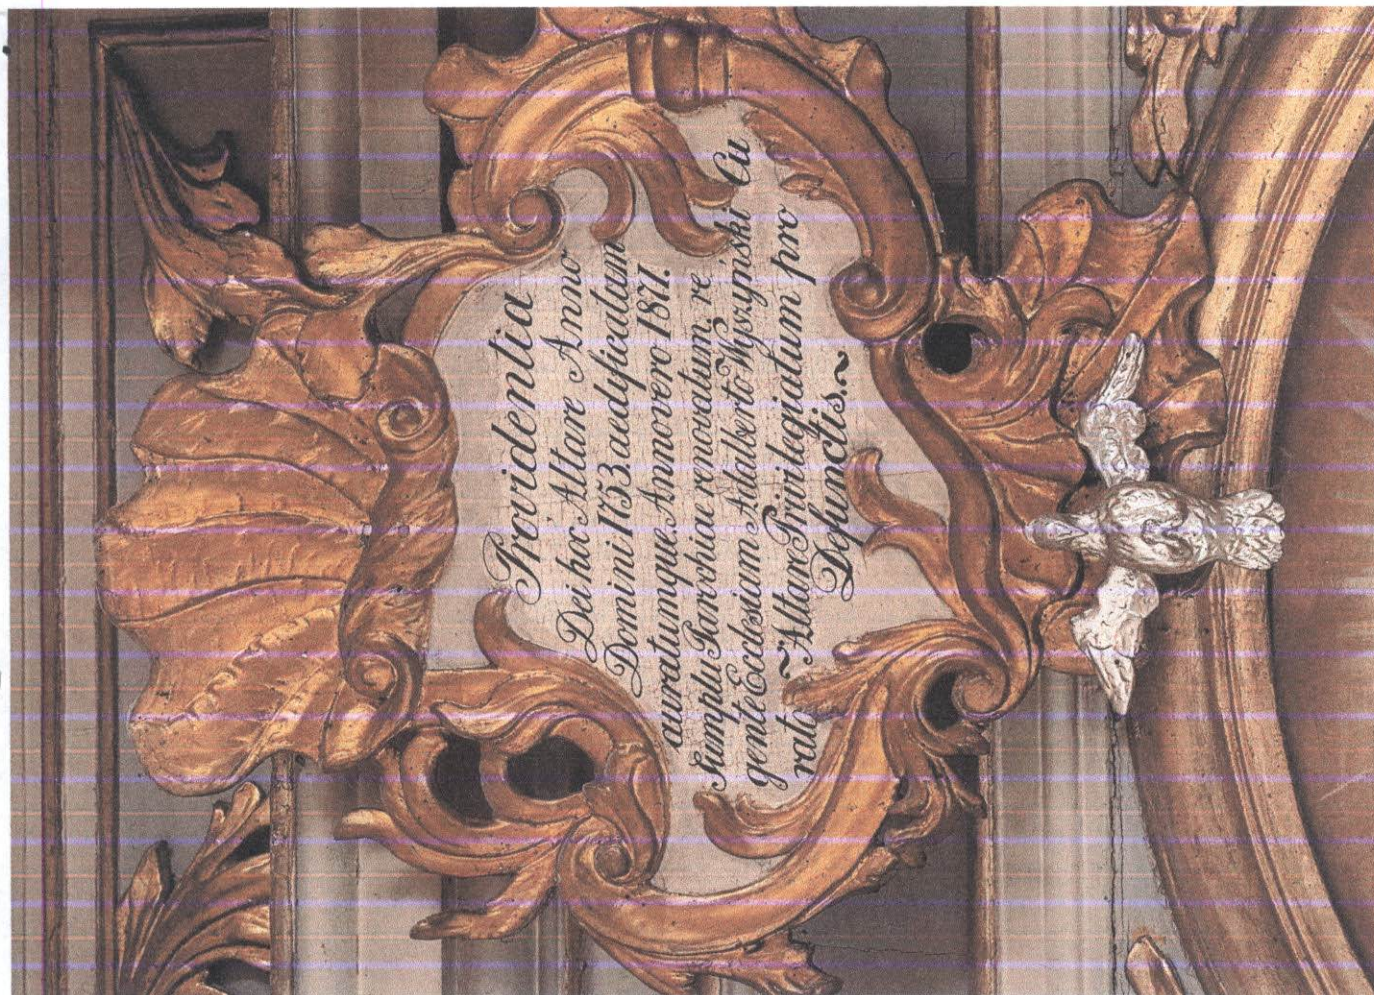 Providentia
Dei hoc Altare Anno
Domini 1753 aedificatum
auratumque. Anno vero 1877.
Sumptu Parochiae renovatum, re
gente Ecclesiam Adalberto Wyszyński Cu
rato ~ Altare Privilegiatum pro
Defunctis. ~